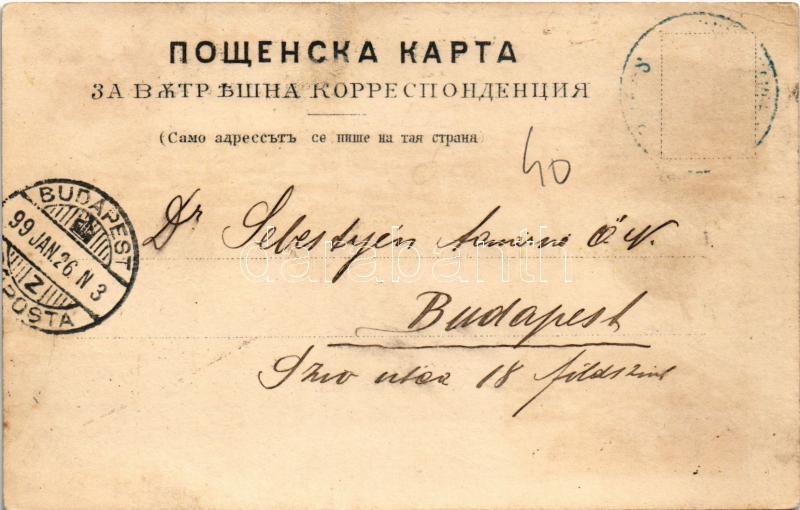 ПОЩЕНСКА КАРТА
ЗА ВѪТРѢШНА КОРРЕСПОНДЕНЦИЯ
(Само адрессътъ се пише на тая страна)
40
BUDAPEST
99 JAN. 26. N 3
Z
POSTA
Dr Sebestyen
darabanth
Budapest
Sziv utca 18 földszint